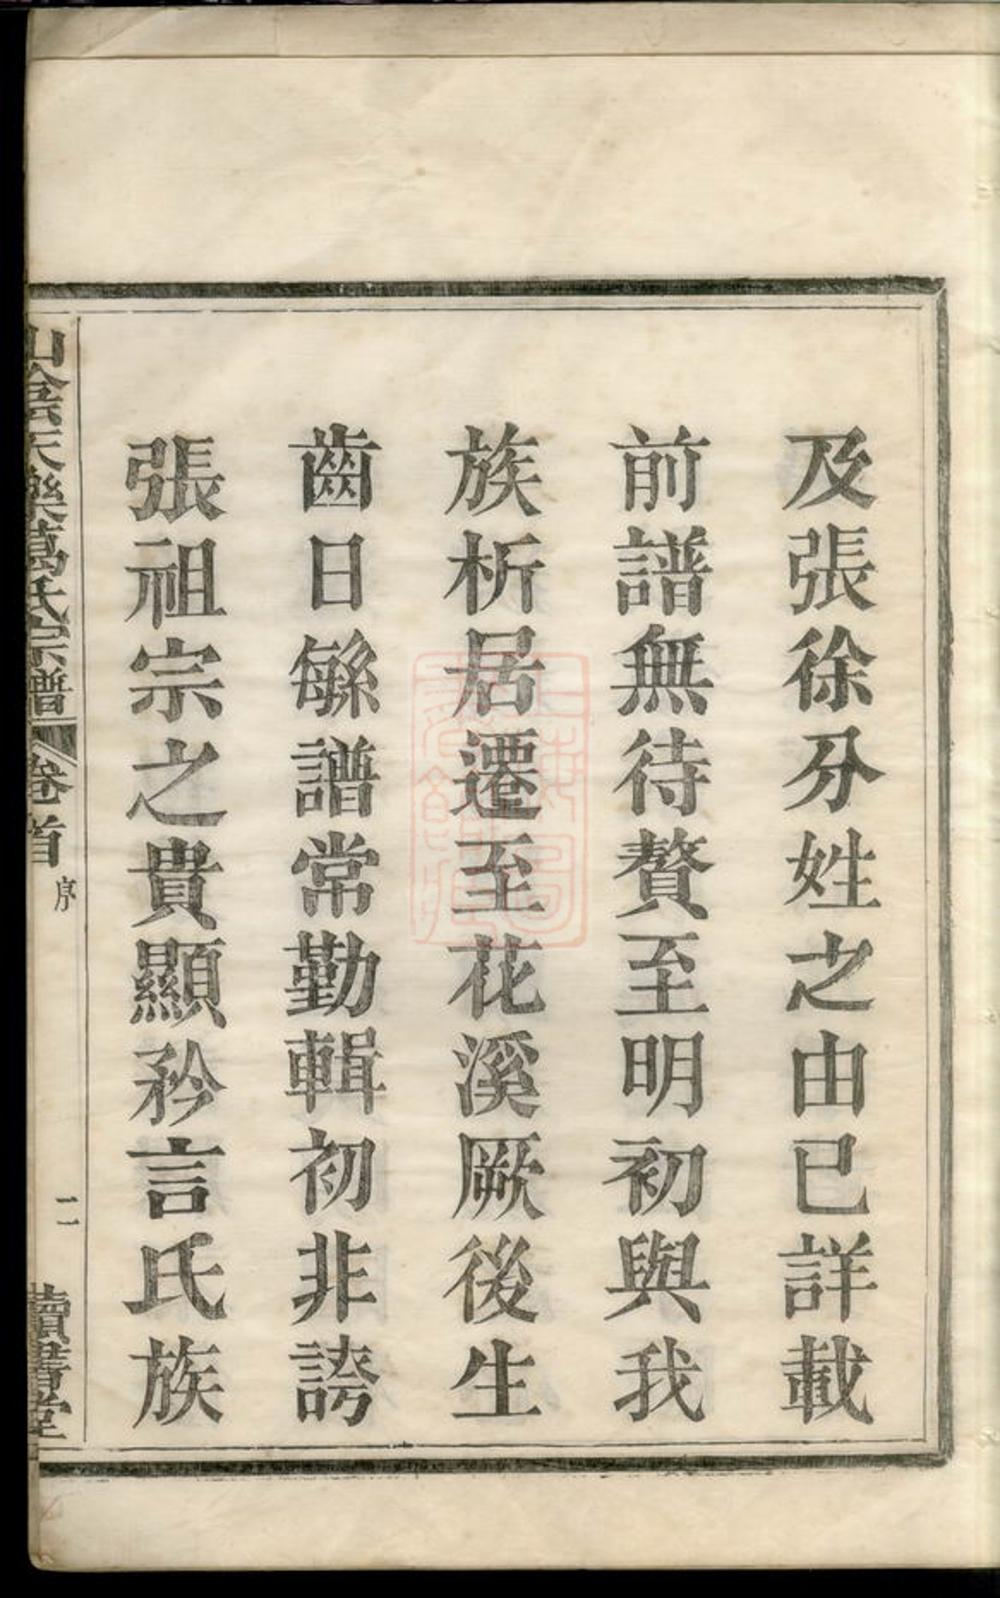 及張徐分姓之由已詳載
前譜無待贅至明初與我
族析居遷至花溪厥後生
齒日緐譜常勤輯初非誇
張祖宗之貴顯矜言氏族
山陰天樂葛氏宗譜
卷首
序
二
讀書堂
上海圖書館藏